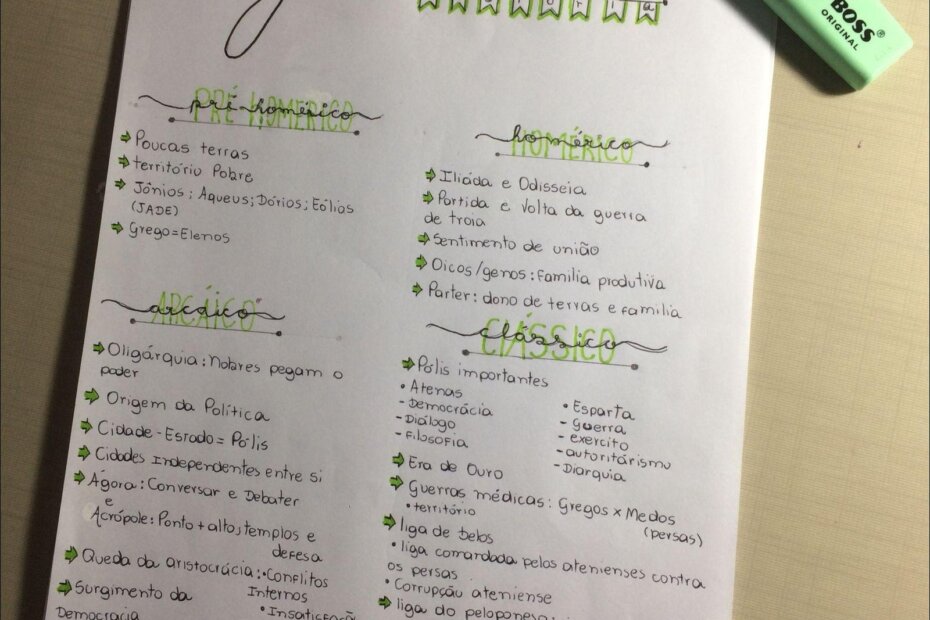 BOSS®
ORIGINAL
pré-homérico
PRÉ HOMERICO
Poucas terras
território Pobre
Jônios; Aqueus; Dórios; Eólios
(JADE)
Grego=Elenos
homérico
HOMÉRICO
Iliáda e Odisseia
Partida e Volta da guerra
de troia
Sentimento de união
Oicos/genos: Familia produtiva
Parter: dono de terras e familia
arcáico
ARCÁICO
Oligárquia: Nobres pegam o
poder
Origem da Política
Cidade-Esrado= Pólis
Cidades Independentes entre si
Ágora: Conversar e Debater
e
Acrópole: Ponto + alto, templos e
defesa
Queda da aristocrácia: • Conflitos
Internos
• Insatisfação
Surgimento da
Democracia
clássico
CLÁSSICO
Pólis importantes
• Atenas
- Democrácia
- Diálogo
- Filosofia
• Esparta
- guerra
- exercito
- autoritárismo
- Diarquia
Era de Ouro
Guerras médicas: Gregos x Medos
(persas)
• território
liga de Delos
• liga comandada pelos atenienses contra
os persas
• Corrupção ateniense
liga do peloponeso: